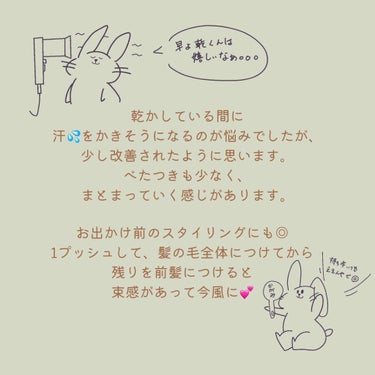 早よ乾くんは
嬉しいなぁ。。。
乾かしている間に
汗💦をかきそうになるのが悩みでしたが、
少し改善されたように思います。
べたつきも少なく、
まとまっていく感じがあります。
お出かけ前のスタイリングにも◎
1プッシュして、髪の毛全体につけてから
残りを前髪につけると
束感があって今風に💕